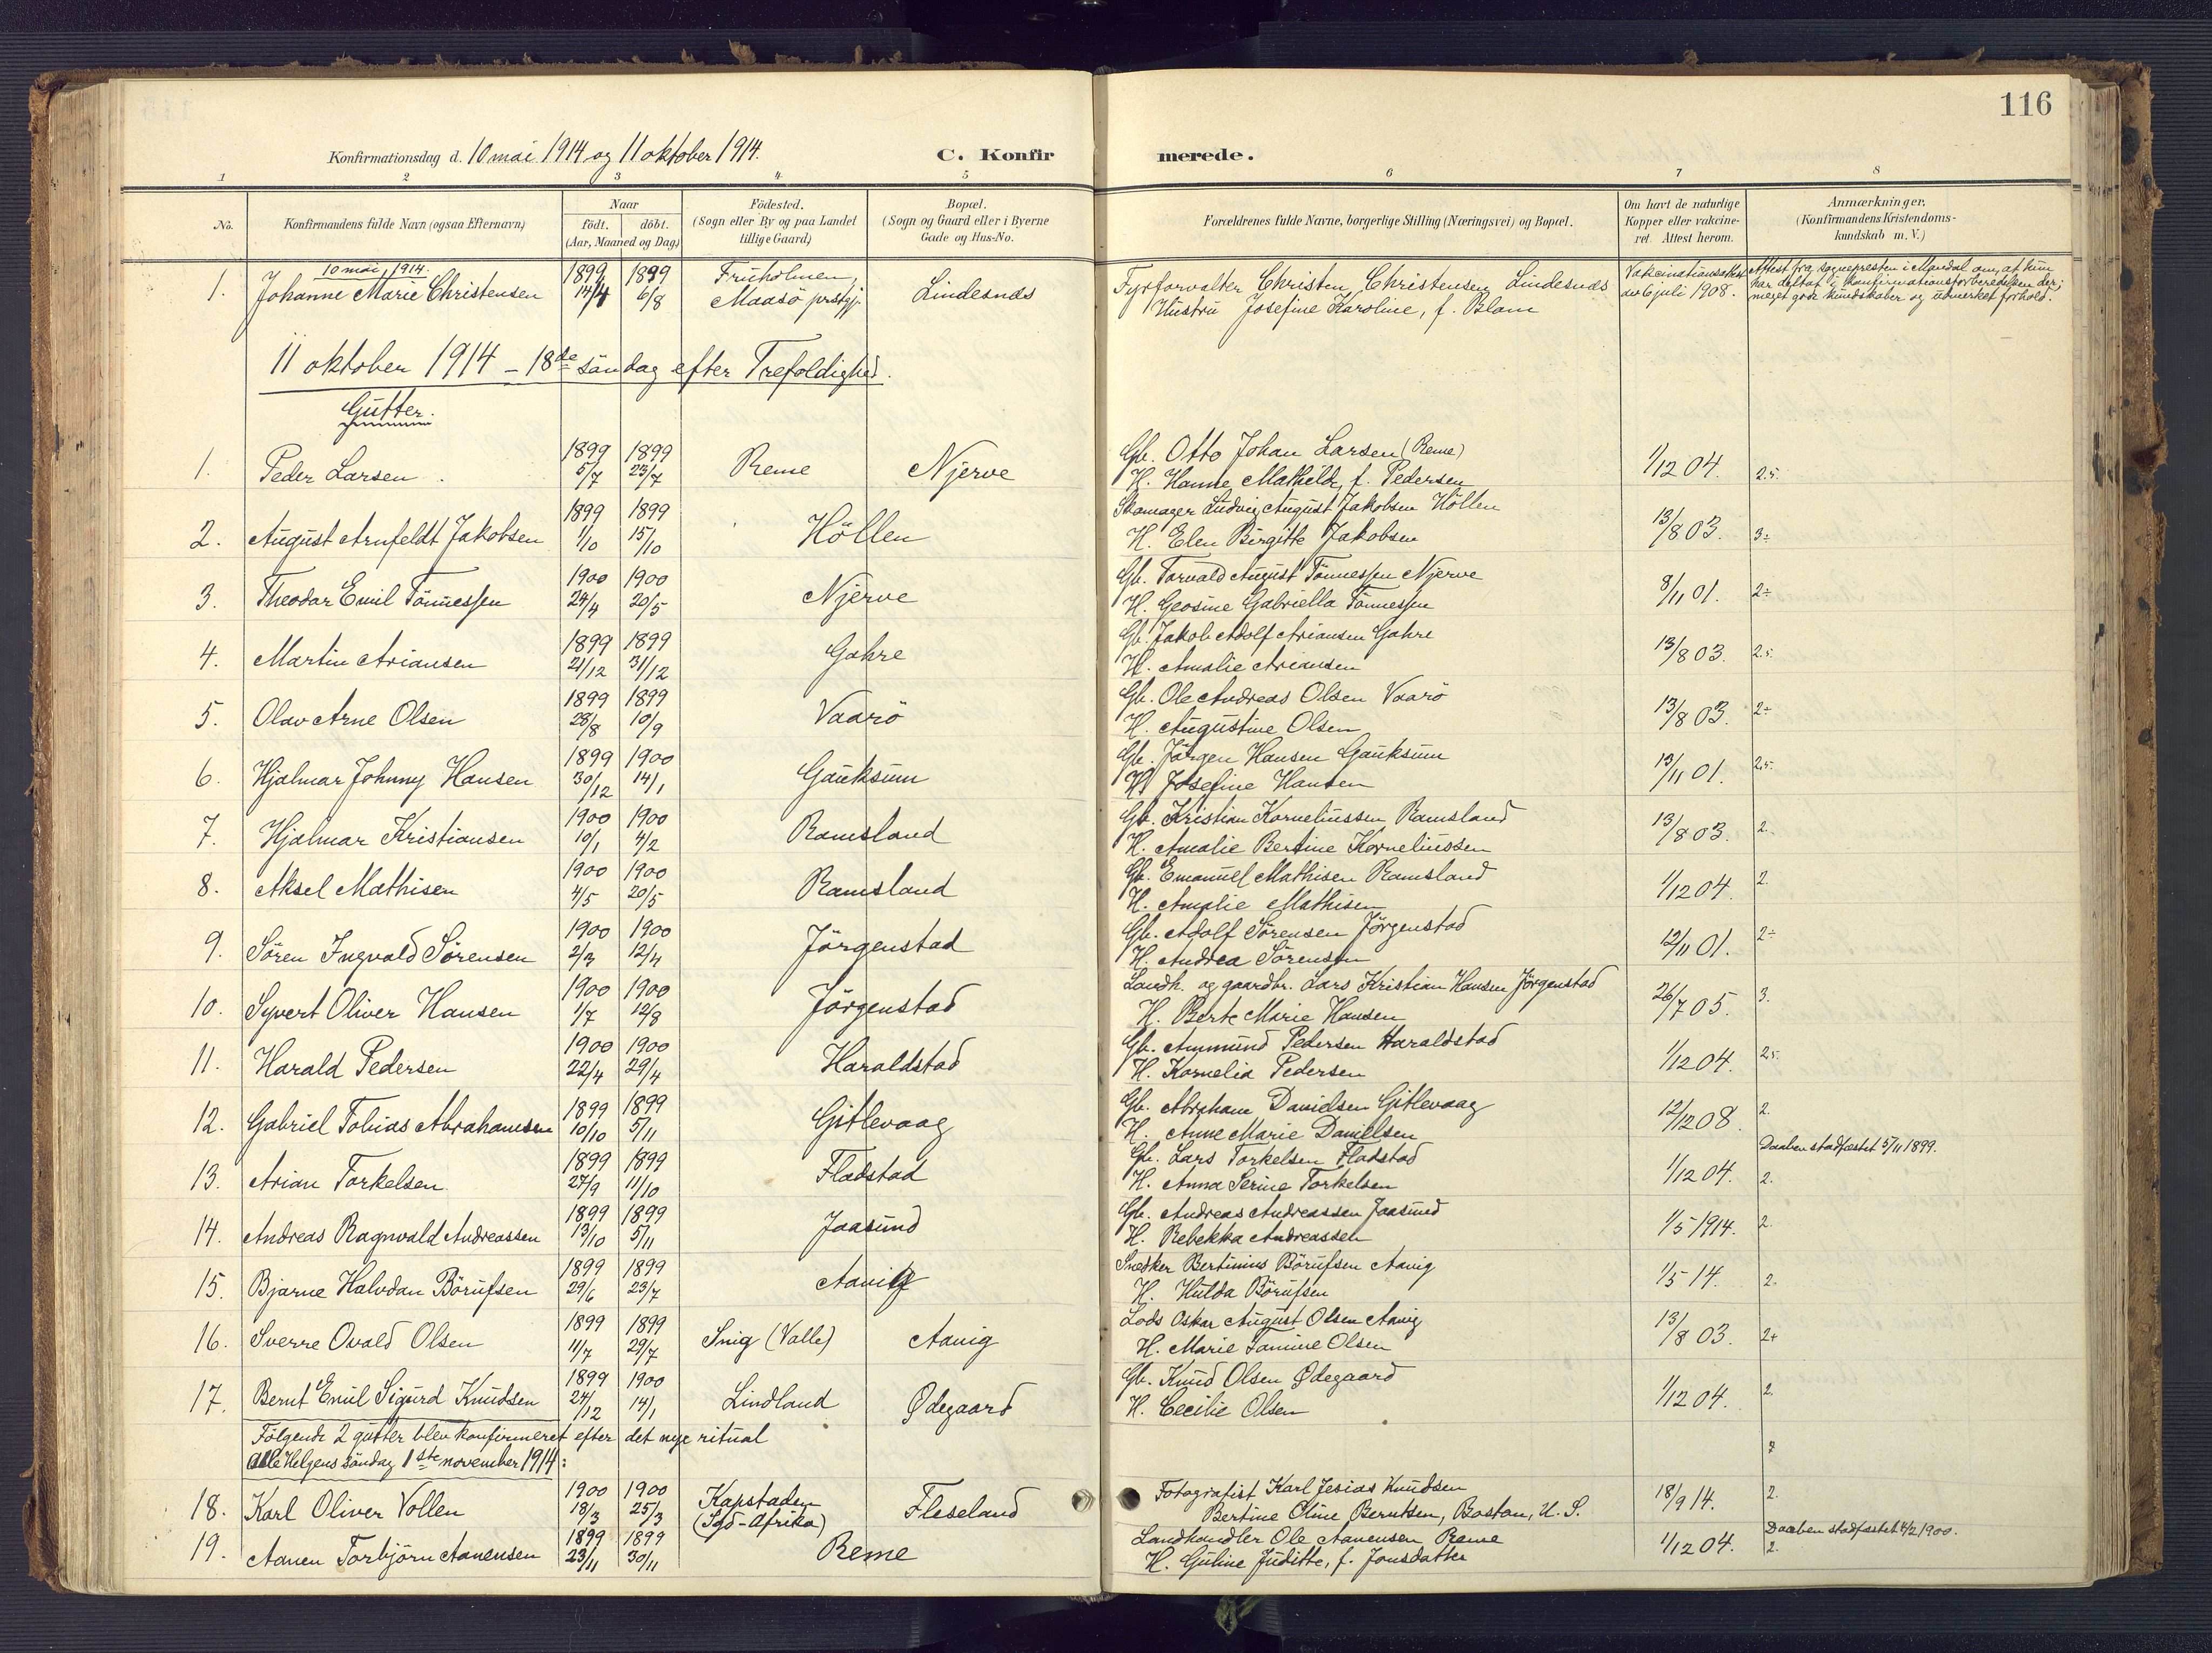 116
Konfirmationsdag d. 10 mai 1914 og 11 oktober 1914.
C. Konfirmerede.
1 2 3 4 5 6 7 8
No. Konfirmandens fulde Navn (ogsaa Efternavn) Naar født. døbt. (Aar, Maaned og Dag) Födested. (Sogn eller By og paa Landet tillige Gaard) Bopæl. (Sogn og Gaard eller i Byerne Gade og Hus-No. Forældrenes fulde Navne, borgerlige Stilling (Næringsvei) og Bopæl. Om havt de naturlige Kopper eller vakcineret. Attest herom. Anmærkninger. (Konfirmandens Kristendomskundskab m. V.)
10 mai 1914.
1. Johanne Marie Christensen 1899 14/4 1899 6/8 Fruholmen, Maasö prstgj. Lindesnæs Fyrforvalter Christen Christensen Lindesnæs Hustru Josefine Karoline, f. Blom Vakcinationsattest av 6 juli 1908. Attest fra sognepresten i Mandal om, at hun har deltat i konfirmationsforberedelsen der; meget gode kundskaber og utmerket forhold.
11 oktober 1914 – 18de söndag efter Trefoldighed.
Gutter.
1. Peder Larsen 1899 5/7 1899 23/7 Reme Njerve Gb. Otto Johan Larsen (Reme) H. Hanne Mathilde, f. Pedersen 1/12 04. 2.5.
2. August Arnfeldt Jakobsen 1899 1/10 1899 15/10 Höllen Skomager Ludvig August Jakobsen Höllen H. Elen Birgitte Jakobsen 13/8 03. 3÷
3. Theodor Emil Tönnessen 1900 24/4 1900 20/5 Njerve Gb. Torvald August Tönnessen Njerve H. Geosine Gabriella Tönnessen 8/11 01. 2÷
4. Martin Ariansen 1899 21/12 1899 31/12 Gahre Gb. Jakob Adolf Ariansen Gahre H. Amalie Ariansen 13/8 03. 2.5.
5. Olav Arne Olsen 1899 28/8 1899 10/9 Vaarö Gb. Ole Andreas Olsen Vaarö H. Augustine Olsen 13/8 03. 2÷
6. Hjalmar Johnny Hansen 1899 30/12 1900 14/1 Gauksum Gb. Jörgen Hansen Gauksum H. Josefine Hansen 13/11 01. 2.5.
7. Hjalmar Kristiansen 1900 10/1 1900 4/2 Ramsland Gb. Kristian Korneliussen Ramsland H. Amalie Bertine Korneliussen 13/8 03. 2.
8. Aksel Mathisen 1900 4/5 1900 20/5 Ramsland Gb. Emanuel Mathisen Ramsland H. Amalie Mathisen 1/12 04. 2.
9. Sören Ingvald Sörensen 1900 2/3 1900 12/4 Jörgenstad Gb. Adolf Sörensen Jörgenstad H. Andrea Sörensen 12/11 01. 2÷
10. Syvert Oliver Hansen 1900 1/7 1900 12/8 Jörgenstad Landh. og gaardbr. Lars Kristian Hansen Jörgenstad H. Berte Marie Hansen 26/7 05. 3.
11. Harald Pedersen 1900 22/4 1900 29/4 Haraldstad Gb. Ammund Pedersen Haraldstad H. Kornelia Pedersen 1/12 04. 2.5.
12. Gabriel Tobias Abrahamsen 1899 10/10 1899 5/11 Gitlevaag Gb. Abraham Danielsen Gitlevaag H. Anne Marie Danielsen 12/12 08. 2.
13. Arian Torkelsen 1899 27/9 1899 11/10 Fladstad Gb. Lars Torkelsen Fladstad H. Anna Serine Torkelsen 1/12 04. Daaben stadfæstet 5/11 1899. 2.
14. Andreas Ragnvald Andreassen 1899 13/10 1899 5/11 Jaasund Gb. Andreas Andreassen Jaasund H. Rebekka Andreassen 1/5 1914. 2.
15. Bjarne Halvdan Börufsen 1899 29/6 1899 23/7 Aavig Snedker Bertinius Börufsen Aavig H. Hulda Börufsen 1/5 14. 2.
16. Sverre Ovald Olsen 1899 11/7 1899 29/7 Snig (Valle) Aavig Lods Oskar August Olsen Aavig H. Marie Tomine Olsen 13/8 03. 2+
17. Bernt Emil Sigurd Knudsen 1899 24/12 1900 14/1 Lindland Ødegaard Gb. Knud Olsen Ødegaard H. Cecilie Olsen 1/12 04. 2.
Følgende 2 gutter blev konfirmeret efter det nye ritual
Alle Helgens söndag 1ste november 1914:
18. Karl Oliver Vollen 1900 18/3 1900 25/3 Kapstaden (Syd-Afrika) Fleseland Fotografist Karl Jesias Knudsen Bertine Oline Berntsen, Boston, U. S. 18/9 14. 2.
19. Aanen Torbjörn Aanensen 1899 23/11 1899 30/11 Reme Landhandler Ole Aanensen Reme H. Guline Juditte, f. Jonsdatter 1/12 04. Daaben stadfæstet 4/2 1900. 2.